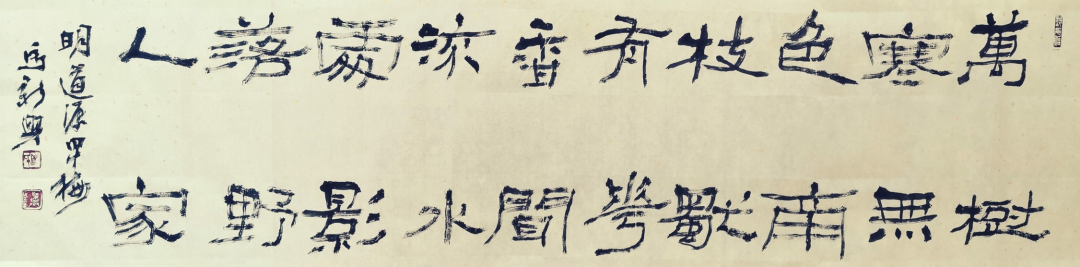 萬樹
寒無
色南
枝獨
有花
香聞
流水
處影
落野
人家
明道源早梅
馬新興